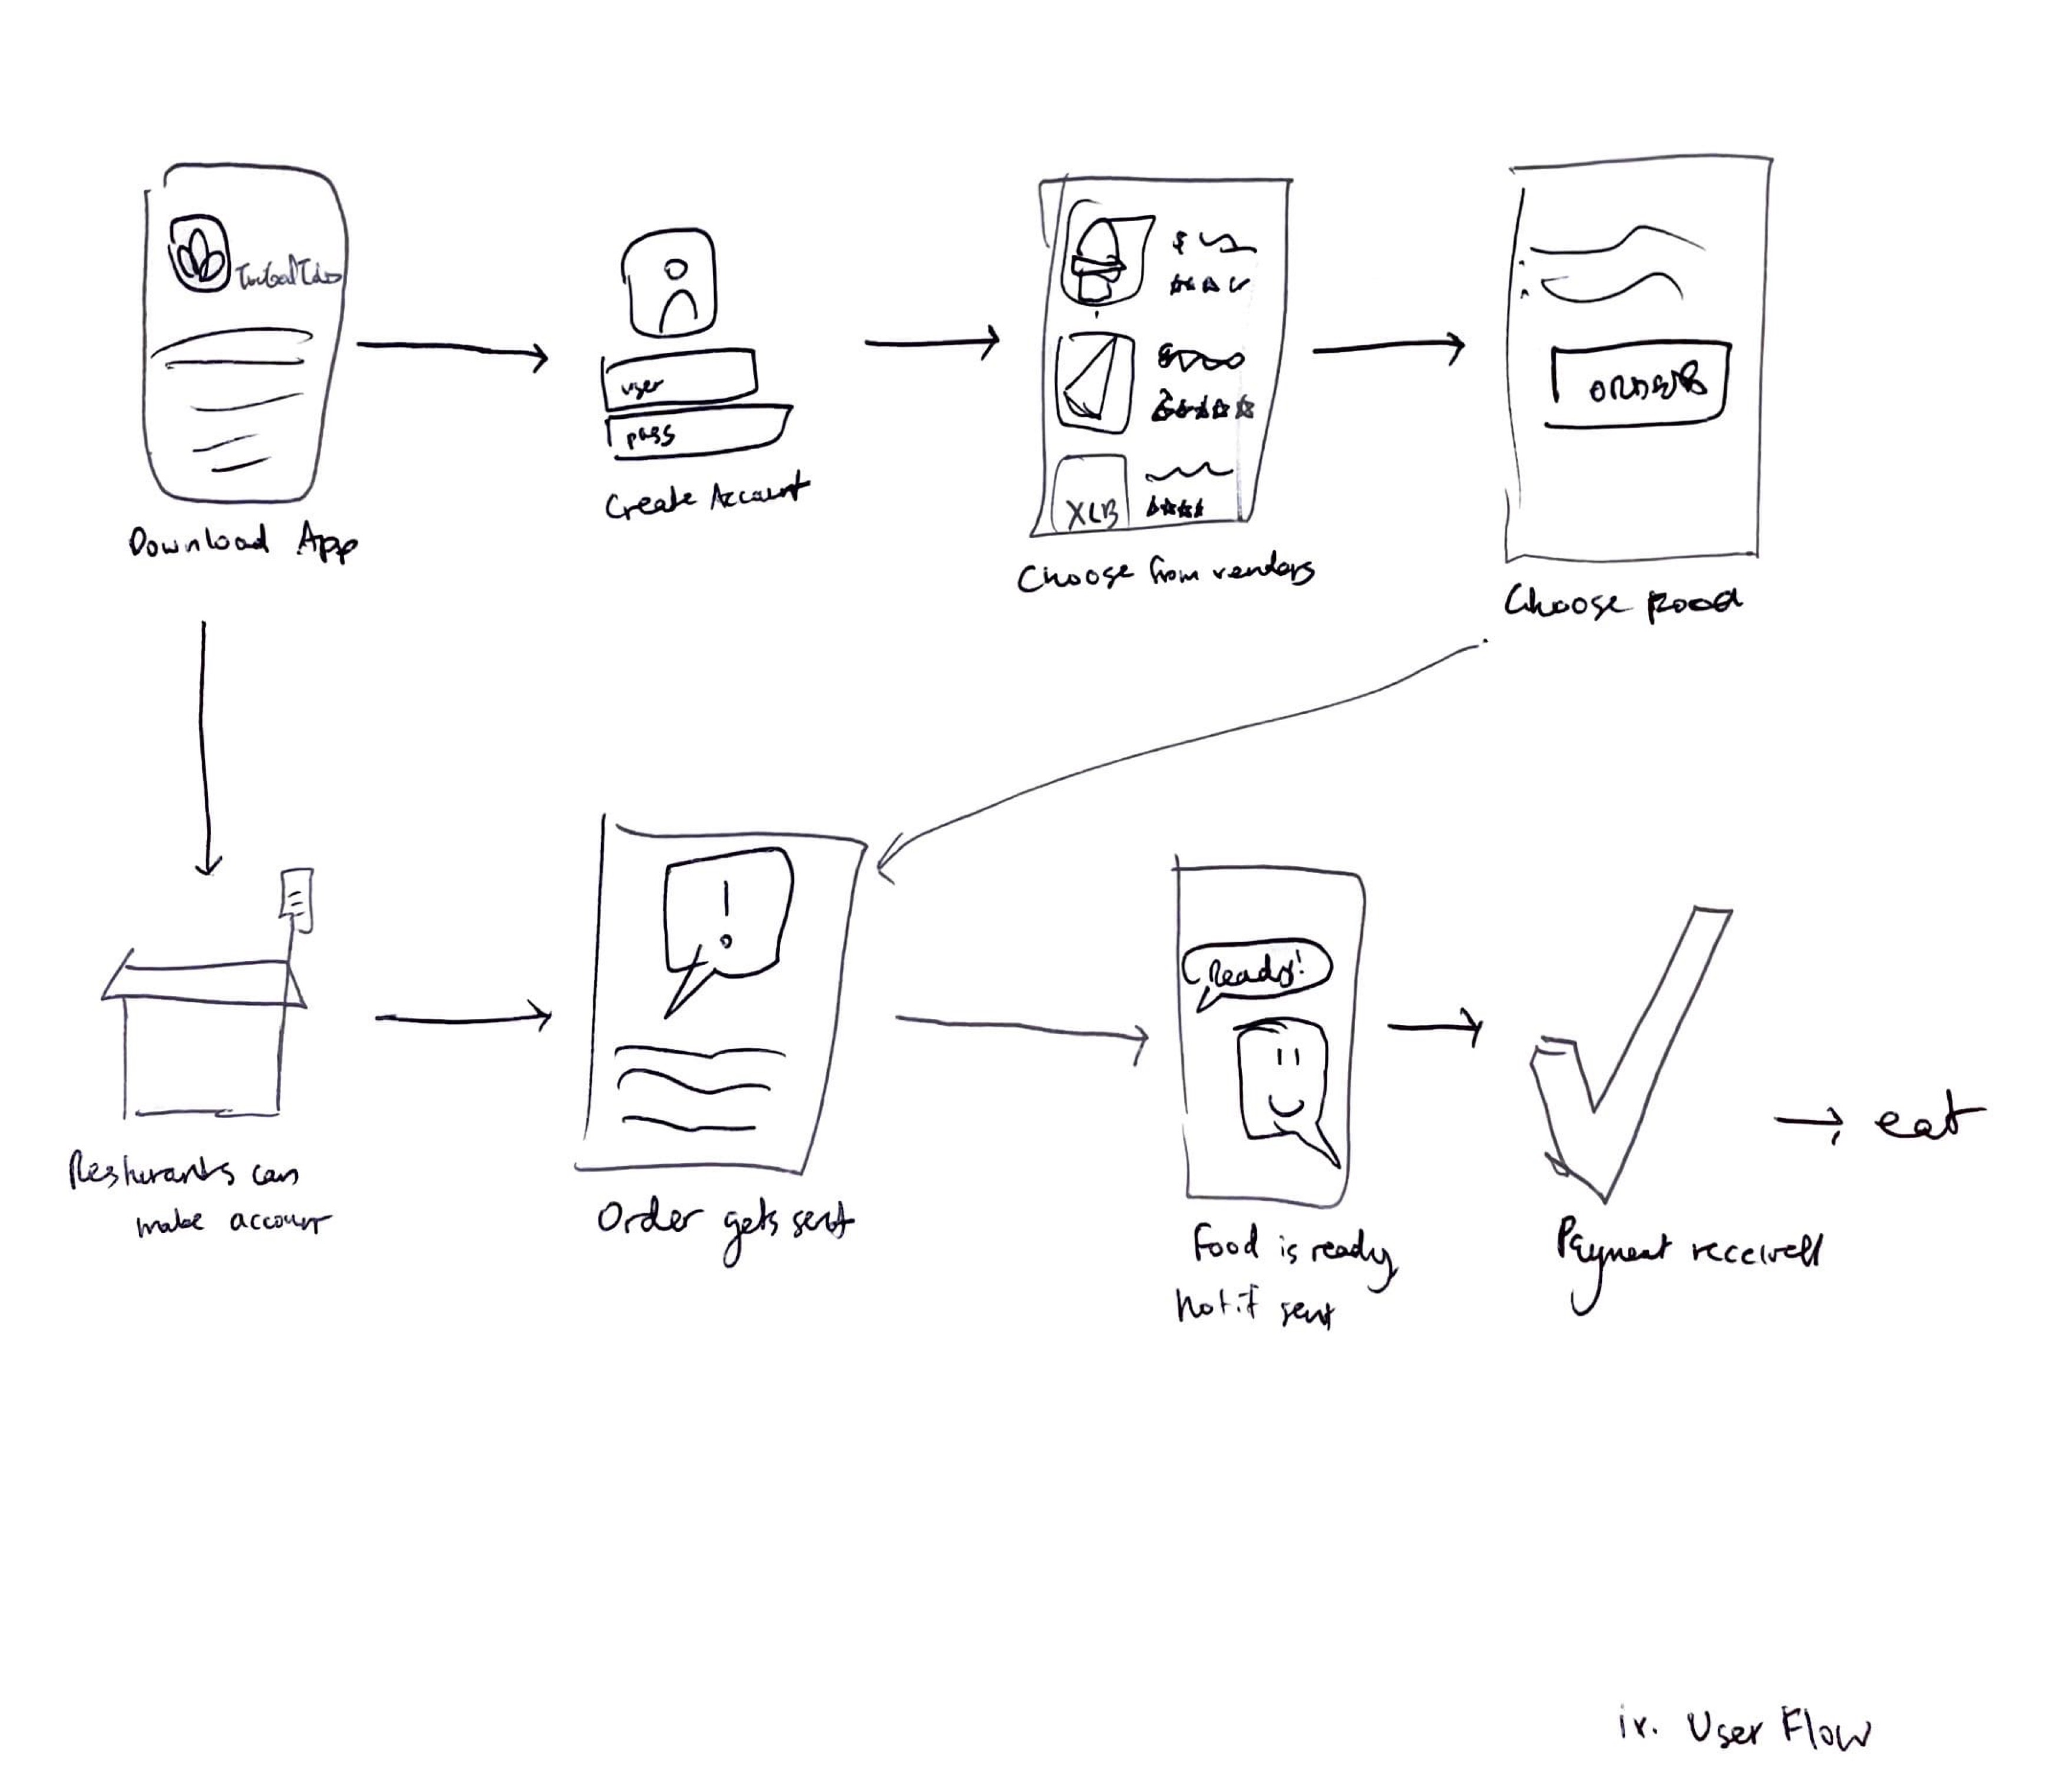 Download App
user
pass
Create Account
XLB
Choose from vendors
ORDER
Choose Food
Resturants can
make account
Order gets sent
Ready!
Food is ready
notif sent
Payment received
eat
iv. User Flow